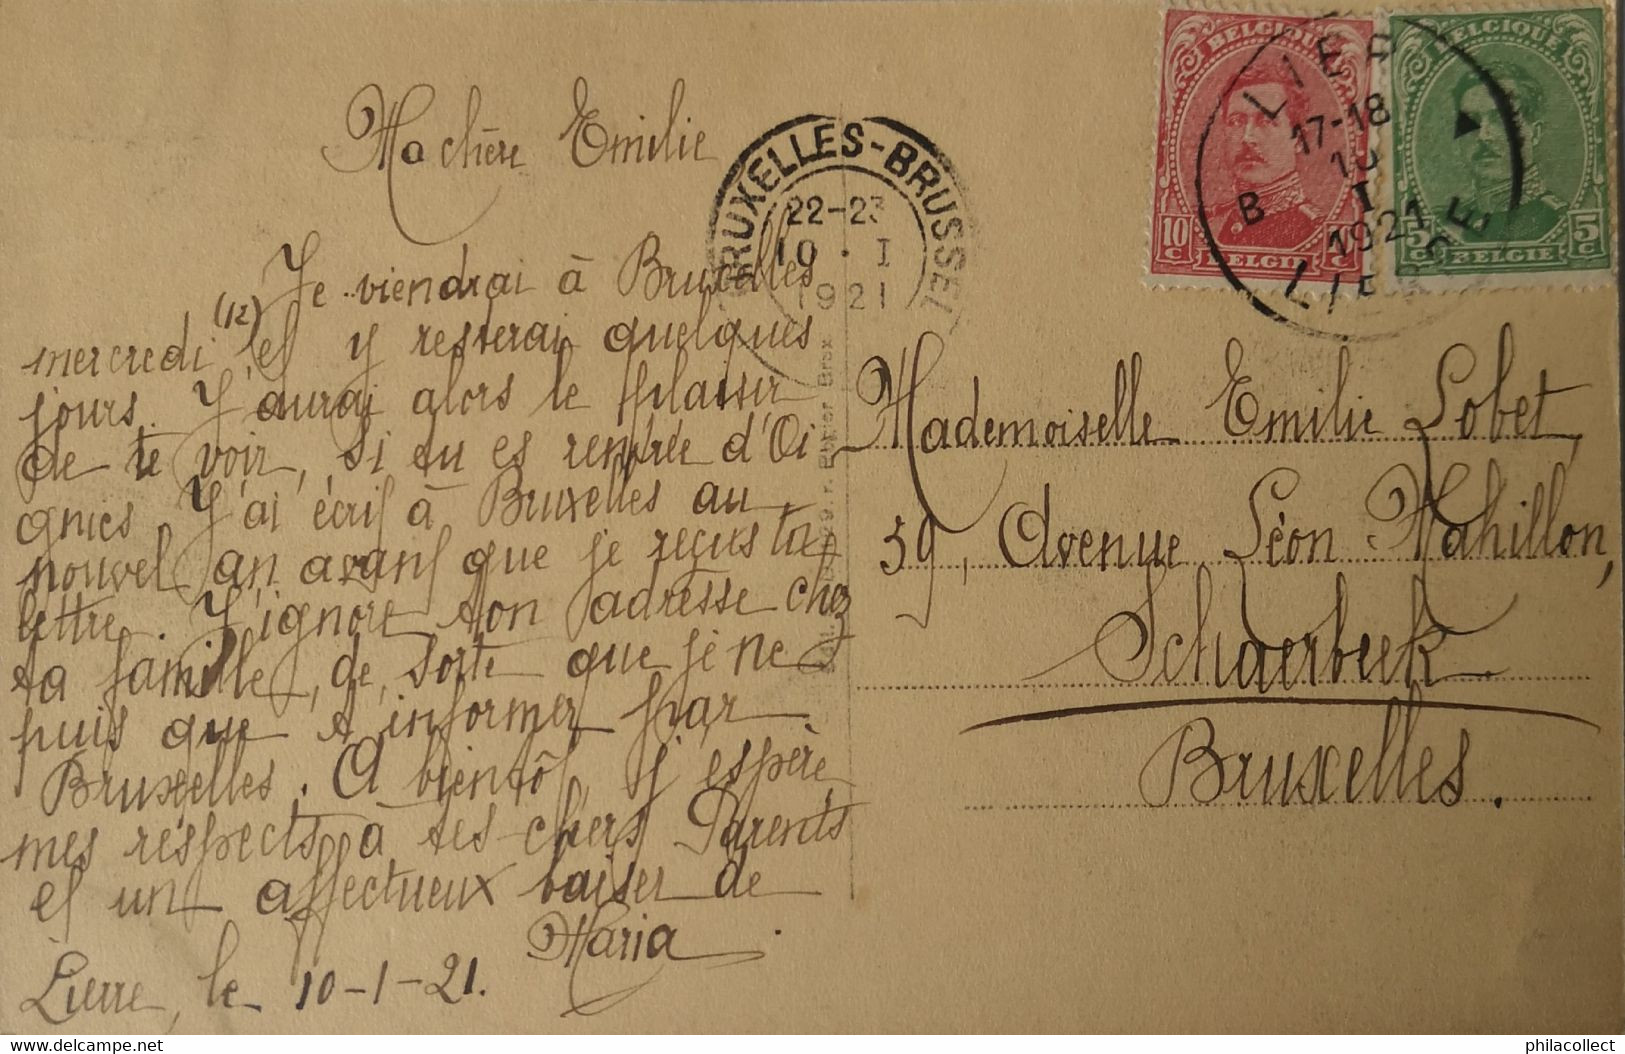 Ma chère Emilie
Je viendrai à Bruxelles
mercredi (12) et y resterai quelques
jours. J'aurai alors le plaisir
de te voir, si tu es rentrée d'Oi
gnies. J'ai écrit à Bruxelles au
nouvel an avant que je reçus ta
lettre. J'ignore ton adresse chez
ta famille, de sorte que je ne
puis que t'informer par
Bruxelles. A bientôt, j'espère,
mes respects à tes chers Parents
et un affectueux baiser de
Maria.
Lierre, le 10-1-21.
BRUXELLES-BRUSSEL
22-23
10 · I
1921
BELGIQUE
10 c
BELGIE
BELGIQUE
5c 5c
BELGIE
LIER
17-18
10
I
1921
B
LIERRE
Mademoiselle Emilie Lobet,
39, Avenue Léon Mahillon,
Schaerbeek
Bruxelles.
philacollect
delcampe.net